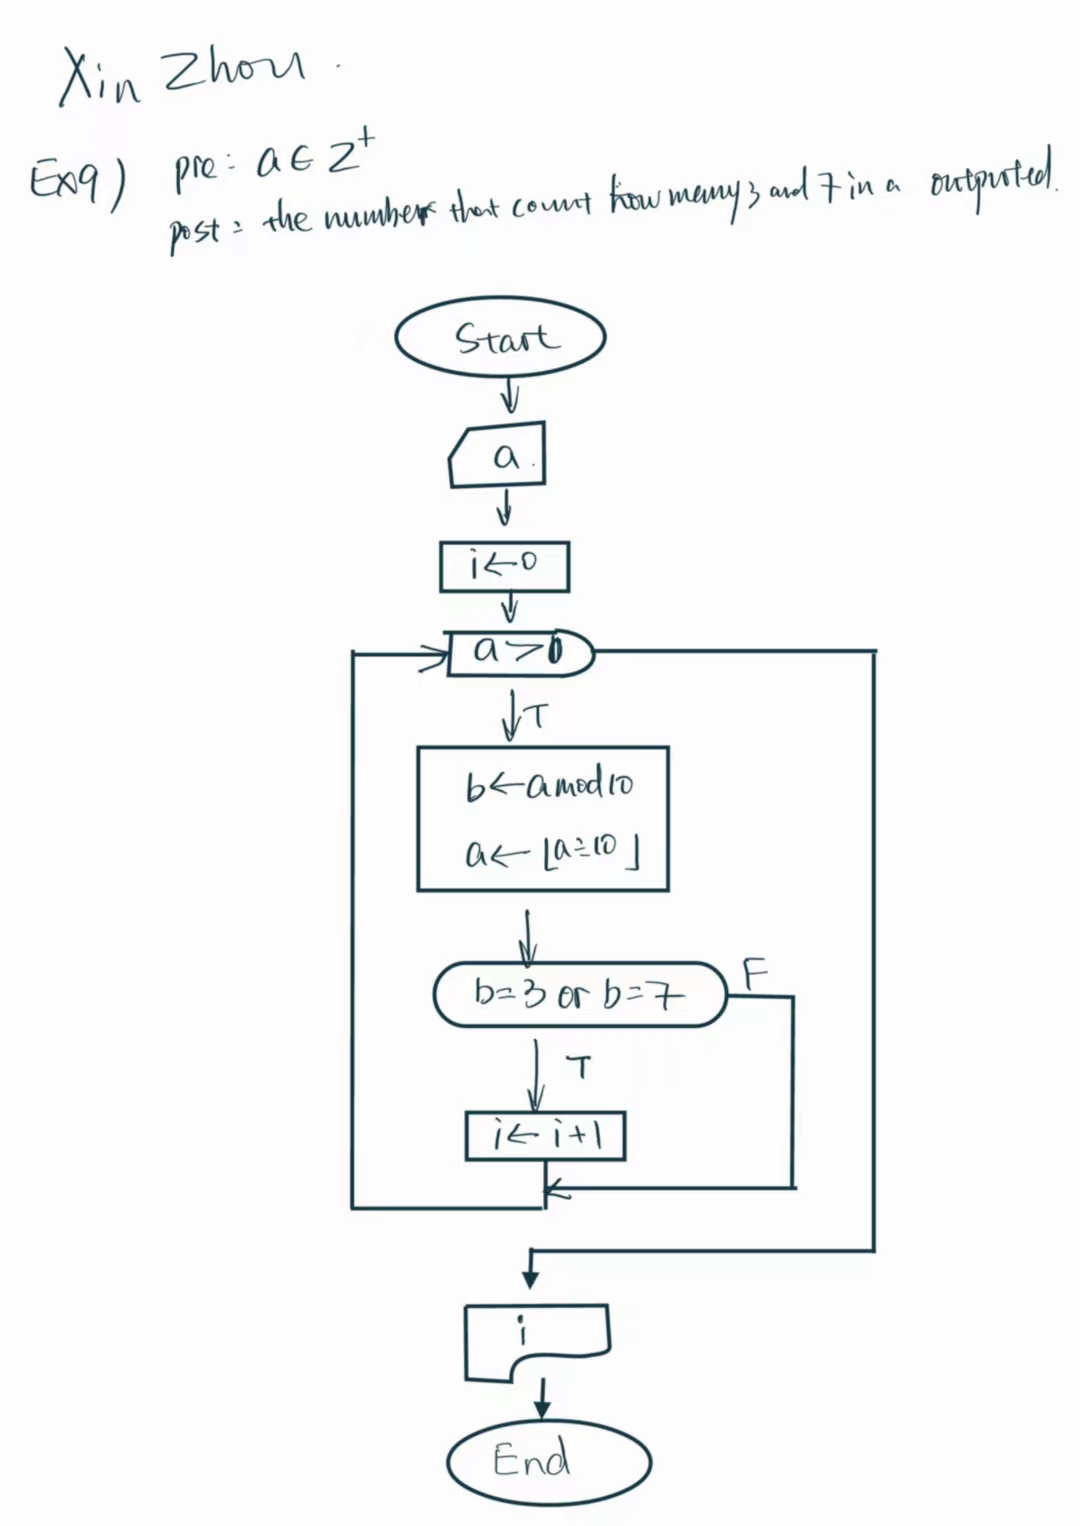 Xin Zhou.
Ex9) pre: a ∈ Z⁺
post: the number that count how many 3 and 7 in a outputted.
Start
a.
i←0
a>0
T
b←a mod 10
a←⌊a÷10⌋
b=3 or b=7
F
T
i←i+1
i
End